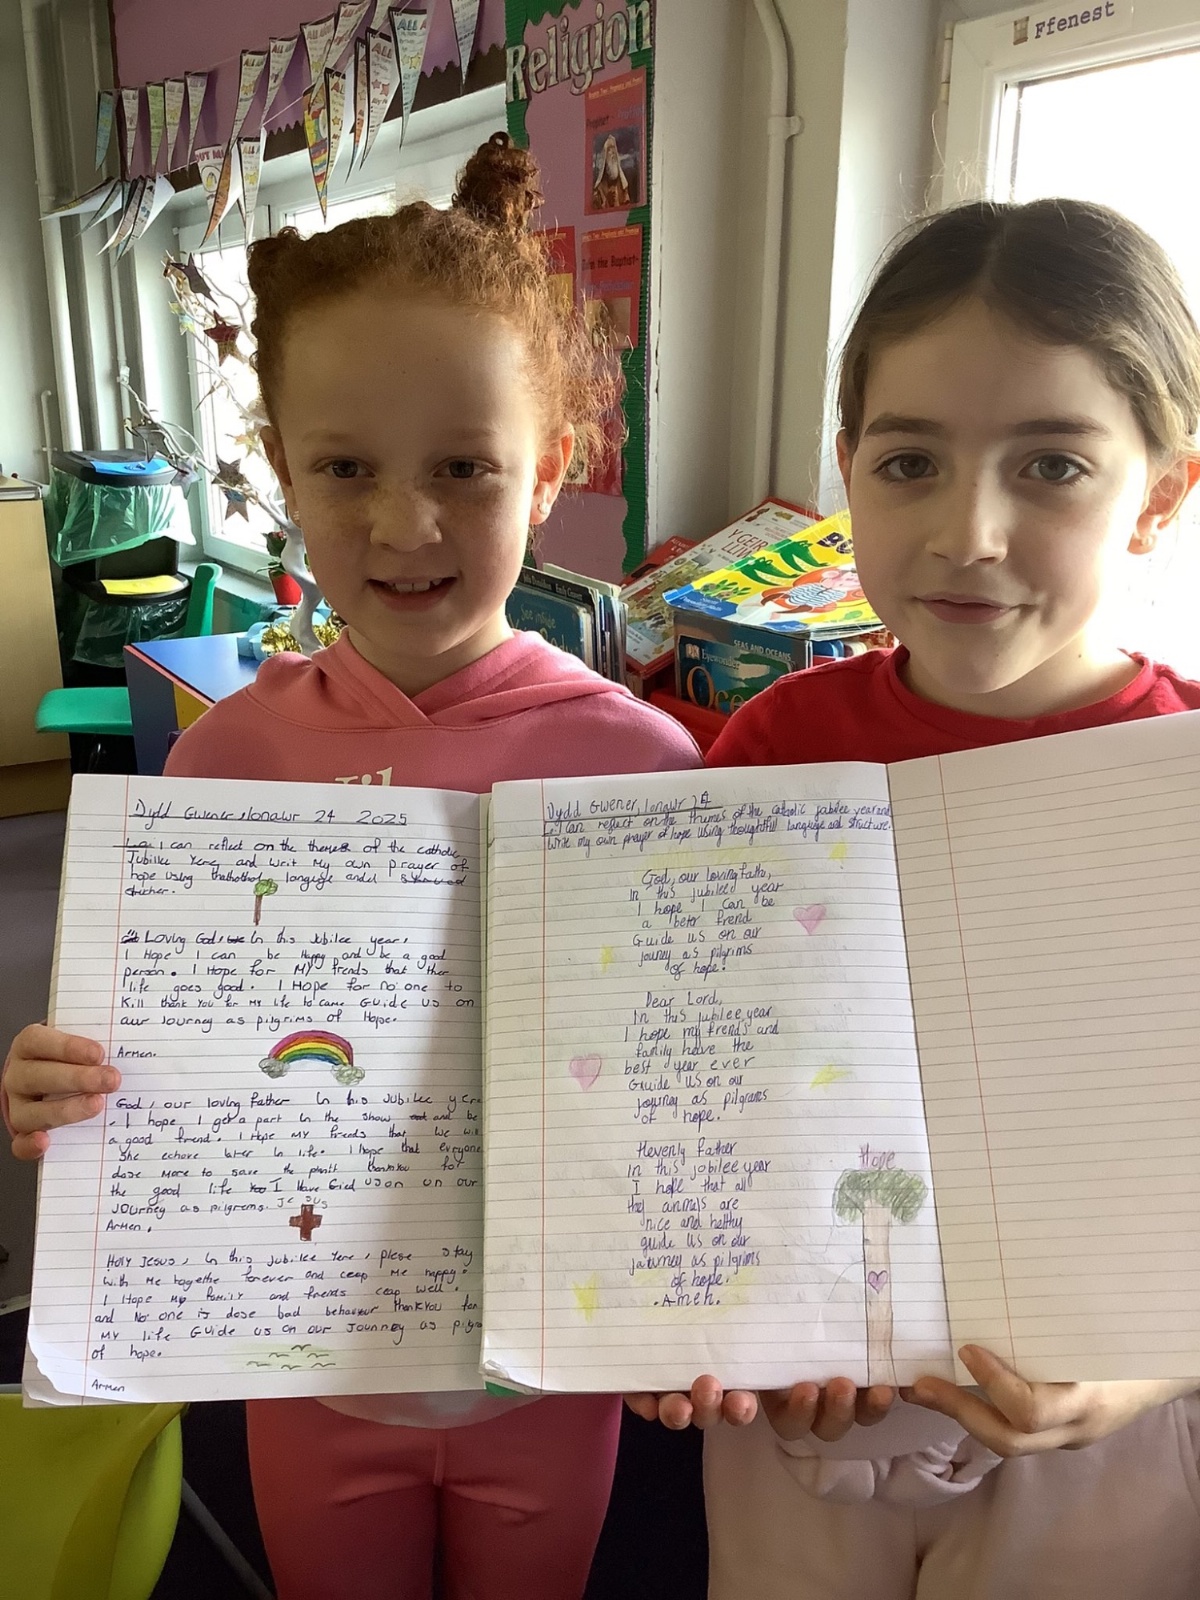 Religion
Ffenest
Y GEIR
SEAS AND OCEANS
Eyewonder
See inside
Dydd Gwener, Ionawr 24 2025
L.o I can reflect on the themes of the catholic
Jubilee Yere, and writ My own prayer of
hope using langage and
Loving God, In this Jubilee year,
I Hope I can be Happy and be a good
person. I Hope for My frends that ther
life goes good. I Hope for no one to
Kill thank You for My life to came GUide us on
our Journey as pilgrims of Hope.
Armen.
God, our loving Father In this Jubilee yere
. I hope I get a part in the show and be
a good friend. I Hope My friends that we will
later in life. I hope that everyone
dose More to save the thankYou for
the good life I Have Gied us on un our
Journey as pilgrems.
JESUS
Armen.
Holy Jesus, In this Jubilee Yere, plese stay
With Me forever and ceep Me happy.
I Hope My family and friends ceep well.
and No one is dose bad behaviour thankYou for
MY life GUide us on our Journey as pilgre
of hope.
Armen
Dydd Gwener, Ionawr 24
L.o I can reflect on the themes of the catholic jubilee year and
write my own prayer of hope using thoughtful language and structure.
God, our loving fathe,
In this jubileed year
I hope I can be
a beter frend
Guide us on our
journy as pilgrims
of hope.
Dear Lord,
In this jubilee year
I hope my frends and
family have the
best year ever
Guide us on our
journey as pilgrams
of hope.
Hevenly father
In this jobilee year
I hope that all
the animals are
nice and helthy
guide us on our
journey as pilgrims
of hope.
.Amen.
Hope